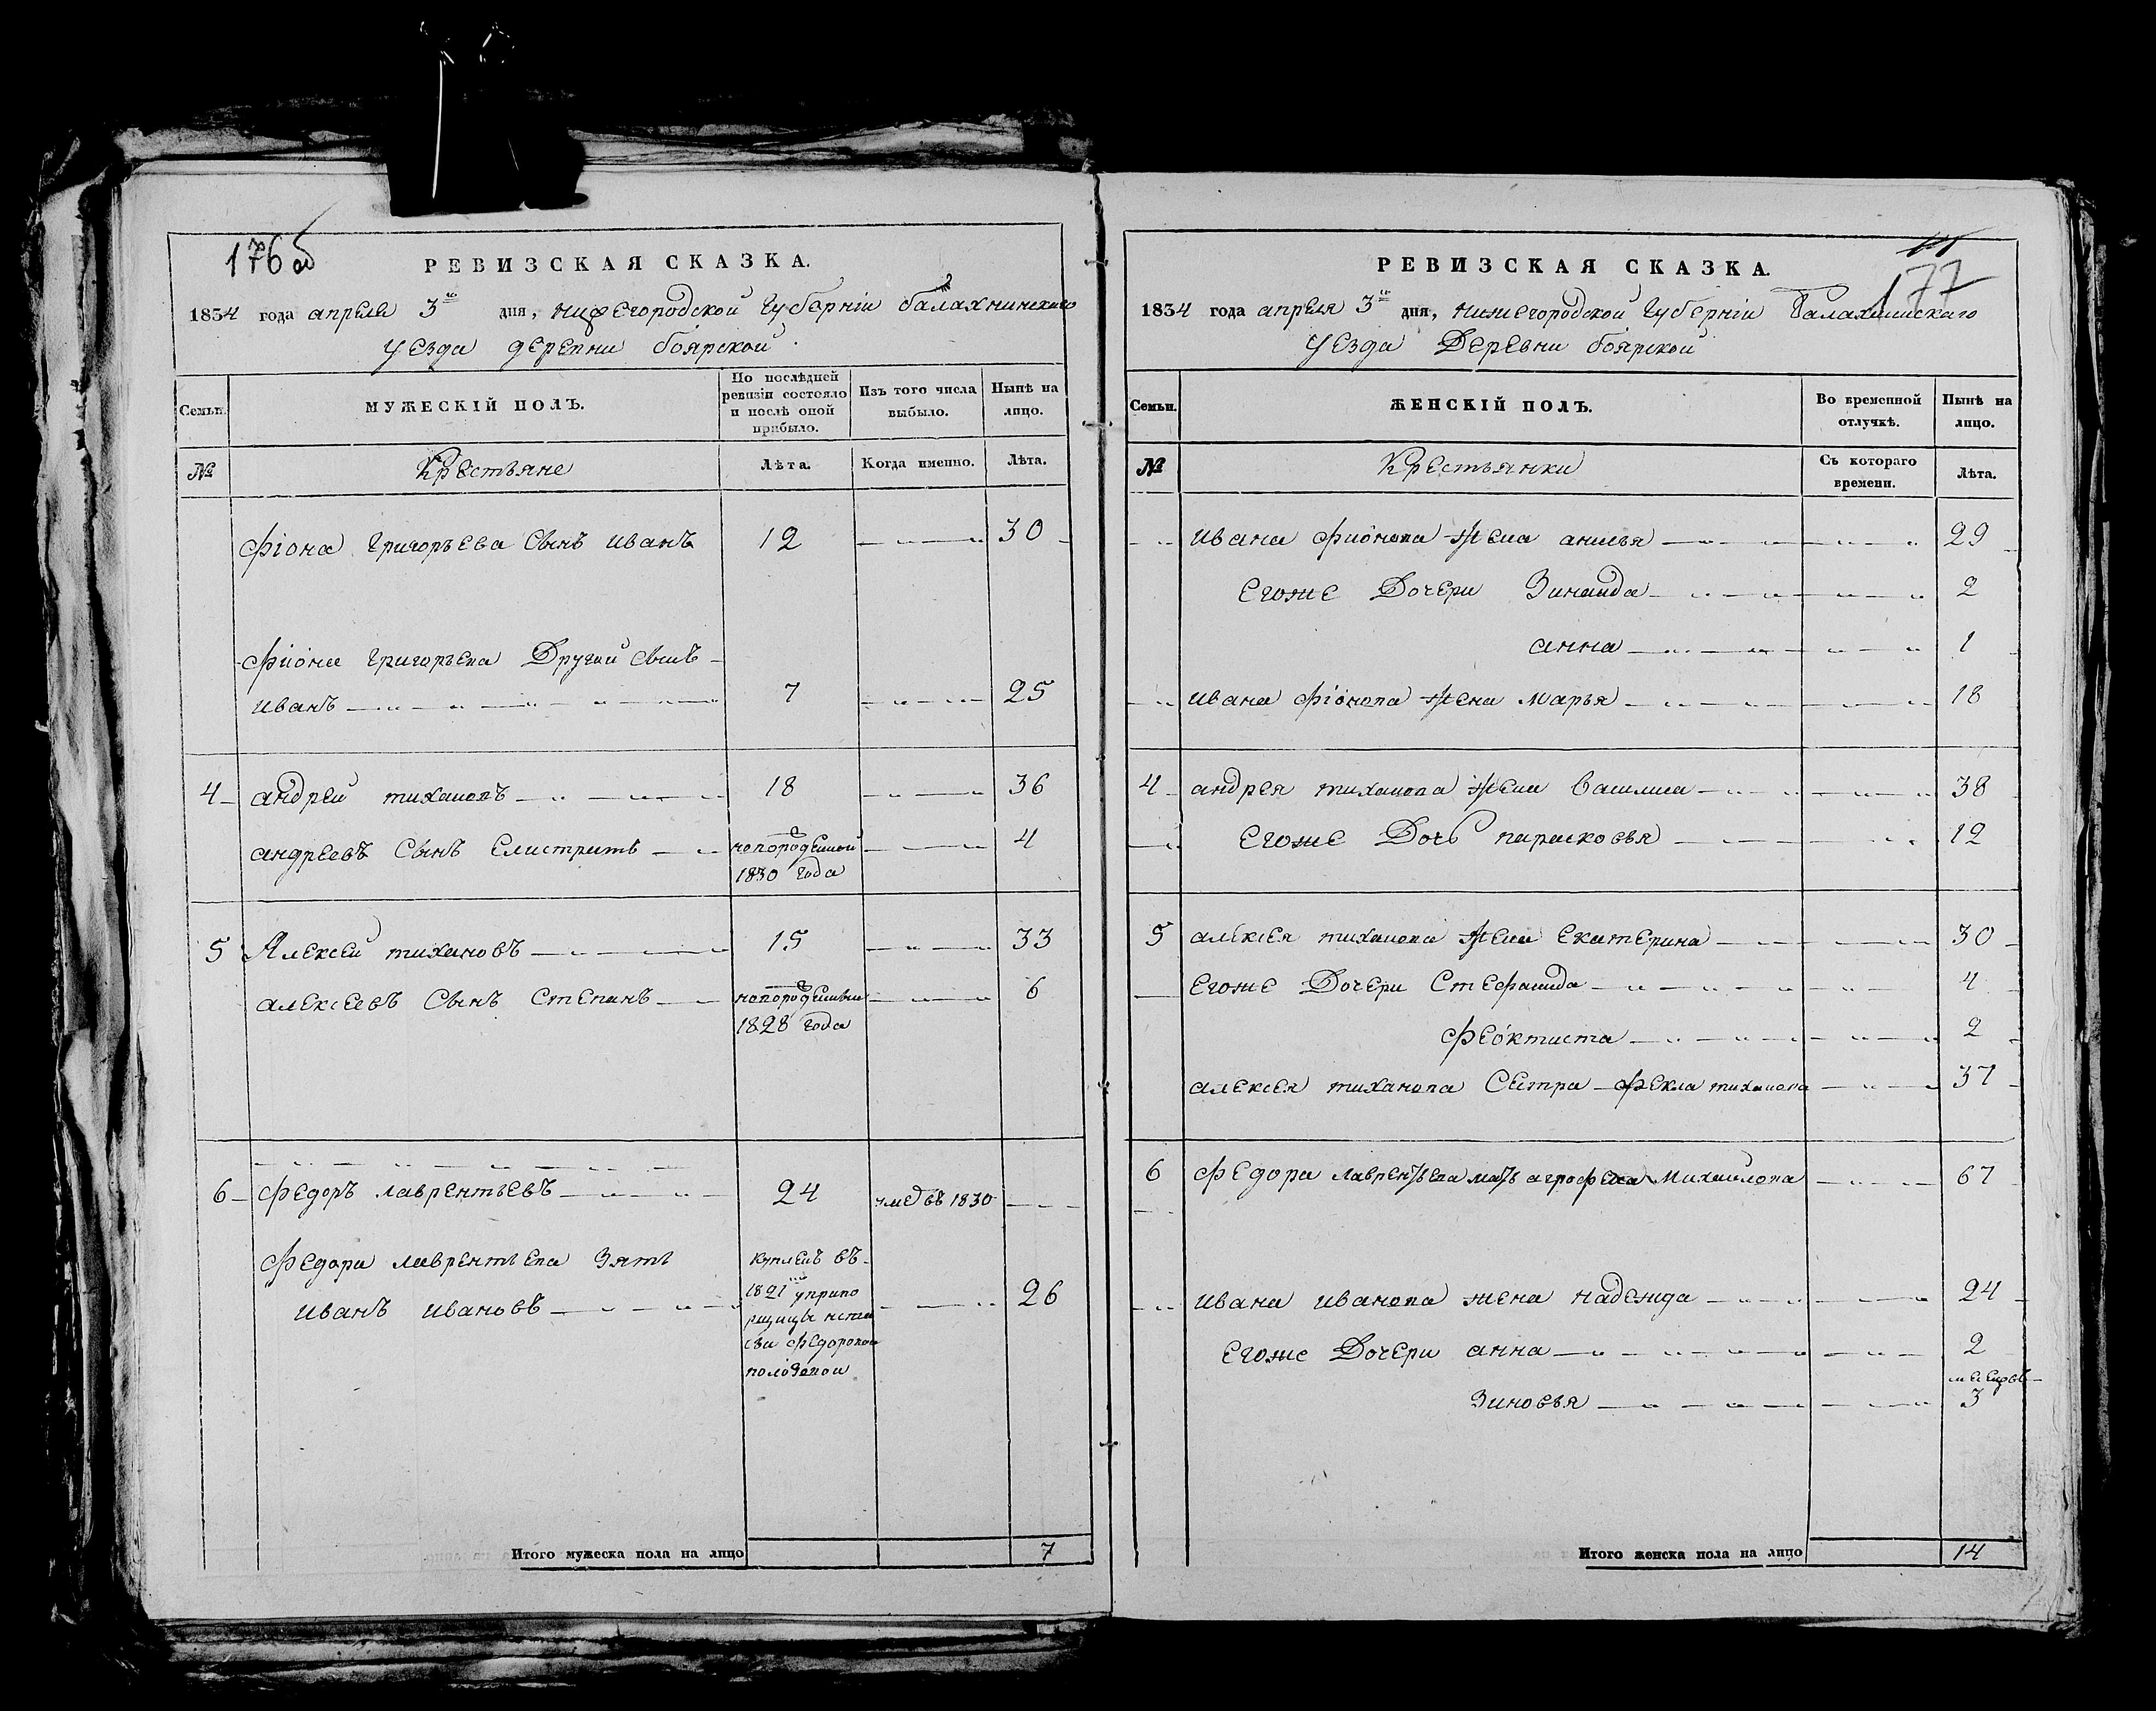 176 об
РЕВИЗСКАЯ СКАЗКА.
1834 года апреля 3го дня, нижегородской губерніи балахнинскаго
уезда деревни боярской
Семьи.
МУЖЕСКІЙ ПОЛЪ.
По послѣдней ревизіи состояло и послѣ оной прибыло.
Изъ того числа выбыло.
Нынѣ на лицо.
№
Крестьяне
Лѣта.
Когда именно.
Лѣта.
Фіона григорьева Сынъ иванъ 12 30
Фиона григорьева Другий сынъ
иванъ 7 25
4 андрей тихановъ 18 36
андреевъ Сынъ Елистратъ новорожденой 4
1830 года
5 Алексей тихановъ 15 33
алексеевъ Сынъ Степанъ новорожденны 6
1828 года
6 Федоръ лаврентьевъ 24 умед въ 1830
Федора лаврентьева Зять купленъ въ
иванъ ивановъ 1821 упрапо 26
рщицы
Федоровой
половой
Итого мужеска пола на лицо 7
177
РЕВИЗСКАЯ СКАЗКА.
1834 года апреля 3го дня, нижегородской губерніи Балахнинскаго
уезда Деревни боярской
Семьи.
ЖЕНСКІЙ ПОЛЪ.
Во временной отлучкѣ.
Нынѣ на лицо.
№
Крестьянки
Съ котораго времени.
Лѣта.
ивана фионова жена анисья 29
Егоже Дочери Зинаида 2
анна 1
ивана фіонова жена марья 18
4 андрея тиханова жена василиса 38
Егоже Дочь парасковья 12
5 алексея тиханова жена Екатерина 30
Егоже Дочери Стефанида 4
Феоктиста 2
алексея тиханова Сестра Фекла тиханова 37
6 Федора лаврентьева мать агрофена Михаилова 67
ивана иванова жена надежда 24
Егоже Дочери анна 2
месецовъ
Зиновья 3
Итого женска пола на лицо 14